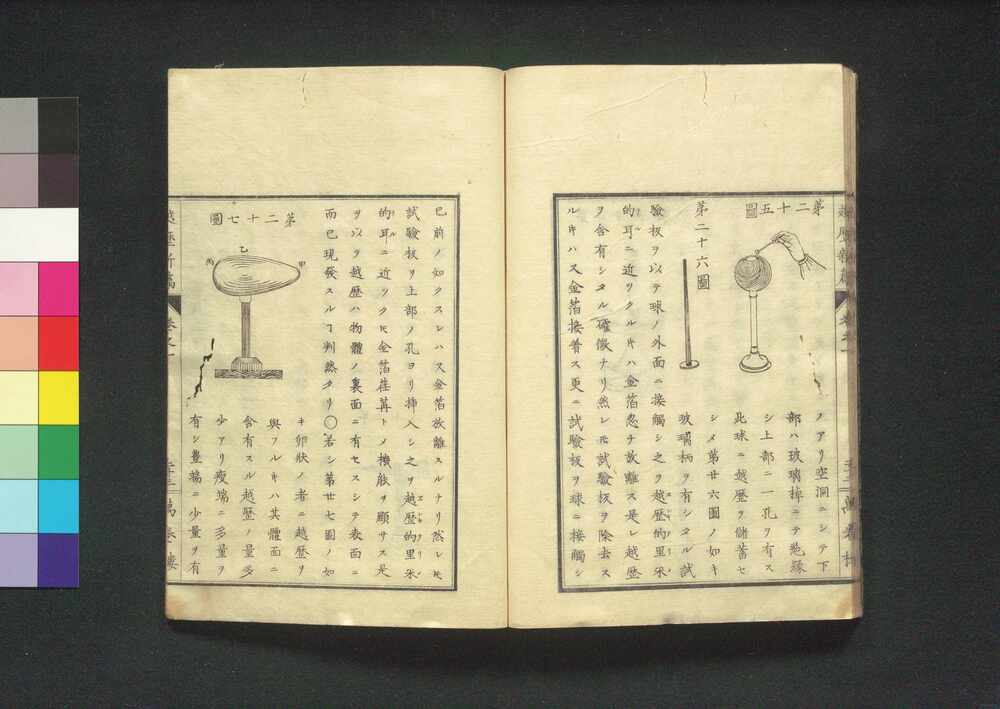 第二十五圖
ノアリ空洞ニシテ下
部ハ玻璃棹ニテ絶縁
シ上部ニ一孔ヲ有ス
此球ニ越歴ヲ儲蓄セ
シメ第廿六圖ノ如キ
玻璃柄ヲ有シタル試
第二十六圖
驗板ヲ以テ球ノ外面ニ接觸シ之ヲ越歴的里米
的耳ニ近ツクルキハ金箔忽チ放離ス是レ越歴
ヲ含有シタル確徴ナリ然レ𪜈試驗板ヲ除去ス
ルキハ又金箔接着ス更ニ試驗板ヲ球ニ接觸シ
已前ノ如クスレハ又金箔放離スルナリ然レ𪜈
試驗板ヲ上部ノ孔ヨリ挿入シ之ヲ越歴的里米
的耳ニ近ツクモ金箔荏苒トメ機能ヲ顯サス是
ヲ以ヲ越歴ハ物體ノ裏面ニ有セスシテ表面ニ
而已現發スルヿ判然タリ〇若シ第廿七圖ノ如
第二十七圖
甲
乙
丙
キ卵狀ノ者ニ越歴ヲ
與フルキハ其體面ニ
含有スル越歴ノ量多
少アリ瘦端ニ多量ヲ
有シ豊端ニ少量ヲ有
越歴新編
卷之一